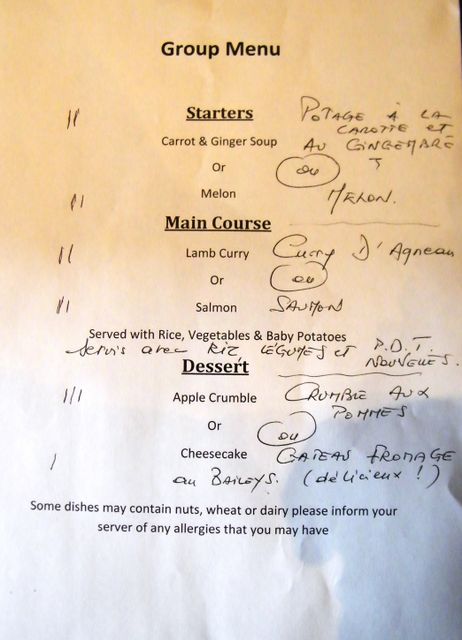 Group Menu
Starters
Carrot & Ginger Soup
Or
Melon
POTAGE À LA
CAROTTE et
AU GINGEMBRE
ou
MELON.
Main Course
Lamb Curry
Or
Salmon
Curry D'Agneau
ou
SAUMON
Served with Rice, Vegetables & Baby Potatoes
Servis avec RIZ LÉGUMES et P.D.T.
NOUVELLES.
Dessert
Apple Crumble
Or
Cheesecake
CRUMBLE AUX
POMMES
ou
GATEAU FROMAGE
au BAILEYS. (délicieux !)
Some dishes may contain nuts, wheat or dairy please inform your
server of any allergies that you may have